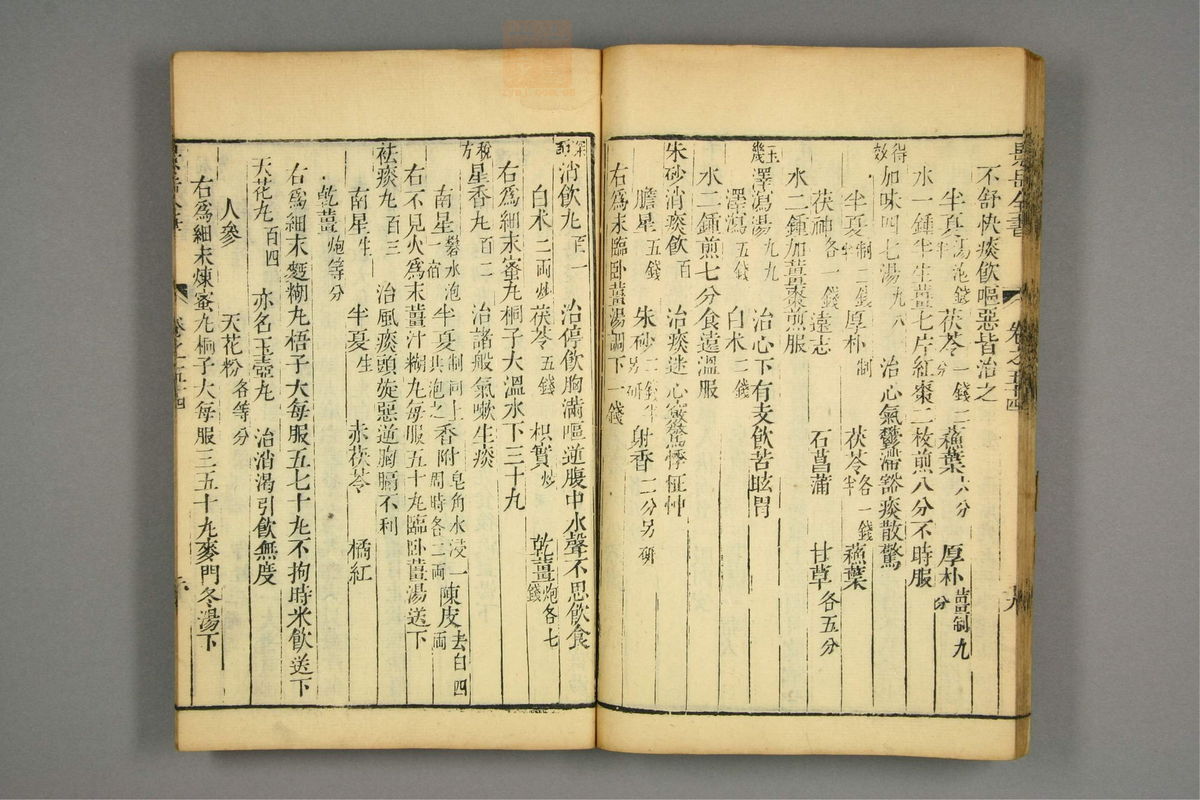 不舒快痰飲嘔惡皆治之
半夏湯泡一錢半 茯苓一錢二分 蘇葉六分 厚朴薑制九分
水一鍾半生薑七片紅棗二枚煎八分不時服
得效加味四七湯九八 治心氣鬱滯豁痰散驚
半夏制二錢半 厚朴制 茯苓各一錢半 蘇葉
茯神各一錢 遠志 石菖蒲 甘草各五分
水二鍾加薑棗煎服
玉幾澤瀉湯九九 治心下有支飲苦眩冒
澤瀉五錢 白朮二錢
水二鍾煎七分食遠溫服
朱砂消痰飲百 治痰迷心竅驚悸怔忡
膽星五錢 朱砂二錢半另研 射香二分另研
右爲末臨臥薑湯調下一錢
景岳全書 卷之五十四
深師消飲丸百一 治停飲胸滿嘔逆腹中水聲不思飲食
白朮二兩炒 茯苓五錢 枳實炒 乾薑炮各七錢
右爲細末蜜丸桐子大溫水下三十丸
稅方星香丸百二 治諸般氣嗽生痰
南星礬水泡一宿 半夏制同上共泡之 香附皂角水浸一周時各二兩 陳皮去白四兩
右不見火爲末薑汁糊丸每服五十丸臨臥薑湯送下
祛痰丸百三 治風痰頭旋惡逆胸膈不利
南星生 半夏生 赤茯苓 橘紅
乾薑炮等分
右爲細末麪糊丸梧子大每服五七十丸不拘時米飲送下
天花丸百四 亦名玉壺丸 治消渴引飲無度
人參 天花粉各等分
右爲細末煉蜜丸桐子大每服三五十丸麥門冬湯下